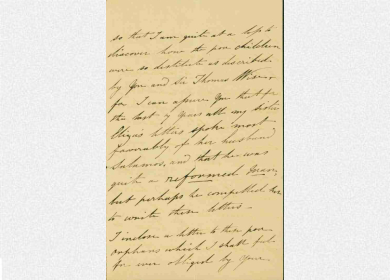 so that I am quite at a loss to
discover how the poor children
were so destitute as described
by you and Sir Thomas
for I can assure you that for
the last 7 years all my sister
Eliza's letters spoke most
favorably of her husband
Salamos, and that he was
quite a reformed man,
but perhaps he compelled her
to write these letters -
I inclose a letter to these poor
orphans which I shall feel
for ever obliged by your